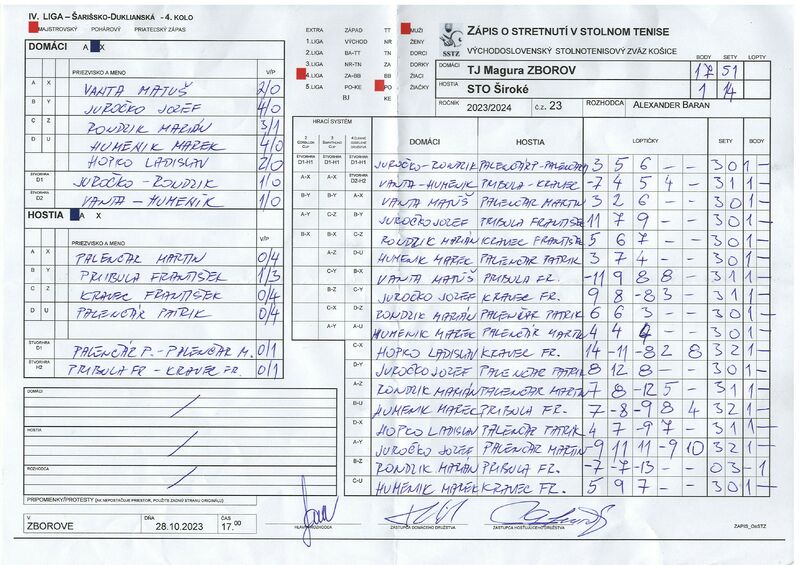 IV. LIGA – ŠARIŠSKO-DUKLIANSKÁ - 4. KOLO
MAJSTROVSKÝ POHÁROVÝ PRIATEĽSKÝ ZÁPAS
DOMÁCI A X
PRIEZVISKO A MENO V/P
A X VANTA MATUŠ 2/0
B Y JUROČKO JOZEF 4/0
C Z RONDZIK MARIÁN 3/1
D U HUMENIK MAREK 4/0
HOPKO LADISLAV 2/0
ŠTVORHRA D1 JUROČKO - RONDZIK 1/0
ŠTVORHRA D2 VANTA - HUMENÍK 1/0
HOSTIA A X
PRIEZVISKO A MENO V/P
A X PALENČÁR MARTIN 0/4
B Y PRIBULA FRANTIŠEK 1/3
C Z KRAVEC FRANTIŠEK 0/4
D U PALENČÁR PATRIK 0/4
ŠTVORHRA D1 PALENČÁR P. - PALENČÁR M. 0/1
ŠTVORHRA H2 PRIBULA FR - KRAVEC FR. 0/1
DOMÁCI
HOSTIA
ROZHODCA
PRIPOMIENKY/PROTESTY (AK NEPOSTAČUJE PRIESTOR, POUŽITE ZADNÚ STRANU ORIGINÁLU)
V ZBOROVE DŇA 28.10.2023 ČAS 17.00
EXTRA ZÁPAD TT MUŽI
1.LIGA VÝCHOD NR ŽENY
2.LIGA BA-TT KN DORCI
3.LIGA NR-TN ZA DORKY
4.LIGA ZA-BB BB ŽIACI
5.LIGA PO-KE PO ŽIAČKY
BJ KE
SSTZ
ZÁPIS O STRETNUTÍ V STOLNOM TENISE
VÝCHODOSLOVENSKÝ STOLNOTENISOVÝ ZVÄZ KOŠICE
BODY SETY LOPTY
DOMÁCI TJ Magura ZBOROV 17 51
HOSTIA STO Široké 1 14
ROČNÍK 2023/2024 č.z. 23 ROZHODCA ALEXANDER BARAN
HRACÍ SYSTÉM
DOMÁCI HOSTIA LOPTIČKY SETY BODY
JUROČKO-RONDZIK PALENČÁR P-PALENČÁR 3 5 6 - - 3 0 1 -
VANTA-HUMENIK PRIBULA-KRAVEC -7 4 5 4 - 3 1 1 -
VANTA MATÚŠ PALENČÁR MARTIN 3 2 6 - - 3 0 1 -
JUROČKO JOZEF PRIBULA FRANTIŠE 11 7 9 - - 3 0 1 -
RONDZIK MARIÁN KRAVEC FRANTIŠE 5 6 7 - - 3 0 1 -
HUMENIK MAREK PALENČÁR PATRIK 3 7 4 - - 3 0 1 -
VANTA MATÚŠ PRIBULA FR. -11 9 8 8 - 3 1 1 -
JUROČKO JOZEF KRAVEC FR. 9 8 -8 3 - 3 1 1 -
RONDZIK MARIÁN PALENČÁR PATRIK 6 6 3 - - 3 0 1 -
HUMENIK MAREK PALENČÁR MARTIN 4 4 4 - - 3 0 1 -
HOPKO LADISLAV KRAVEC FR. 14 -11 -8 2 8 3 2 1 -
JUROČKO JOZEF PALENČÁR PATRIK 8 12 8 - - 3 0 1 -
RONDZIK MARIÁN PALENČÁR MARTIN 7 8 -12 5 - 3 1 1 -
HUMENIK MAREK PRIBULA FR. 7 -8 -9 8 4 3 2 1 -
HOPKO LADISLAV PALENČÁR PATRIK 4 7 -9 7 - 3 1 1 -
JUROČKO JOZEF PALENČÁR MARTIN -9 11 11 -9 10 3 2 1 -
RONDZIK MARIÁN PRIBULA FR. -7 -7 -13 - - 0 3 - 1
HUMENIK MAREK KRAVEC FR. 5 9 7 - - 3 0 1 -
HLAVNÝ ROZHODCA ZÁSTUPCA DOMÁCEHO DRUŽSTVA ZÁSTUPCA HOSŤUJÚCEHO DRUŽSTVA ZAPIS_OsSTZ